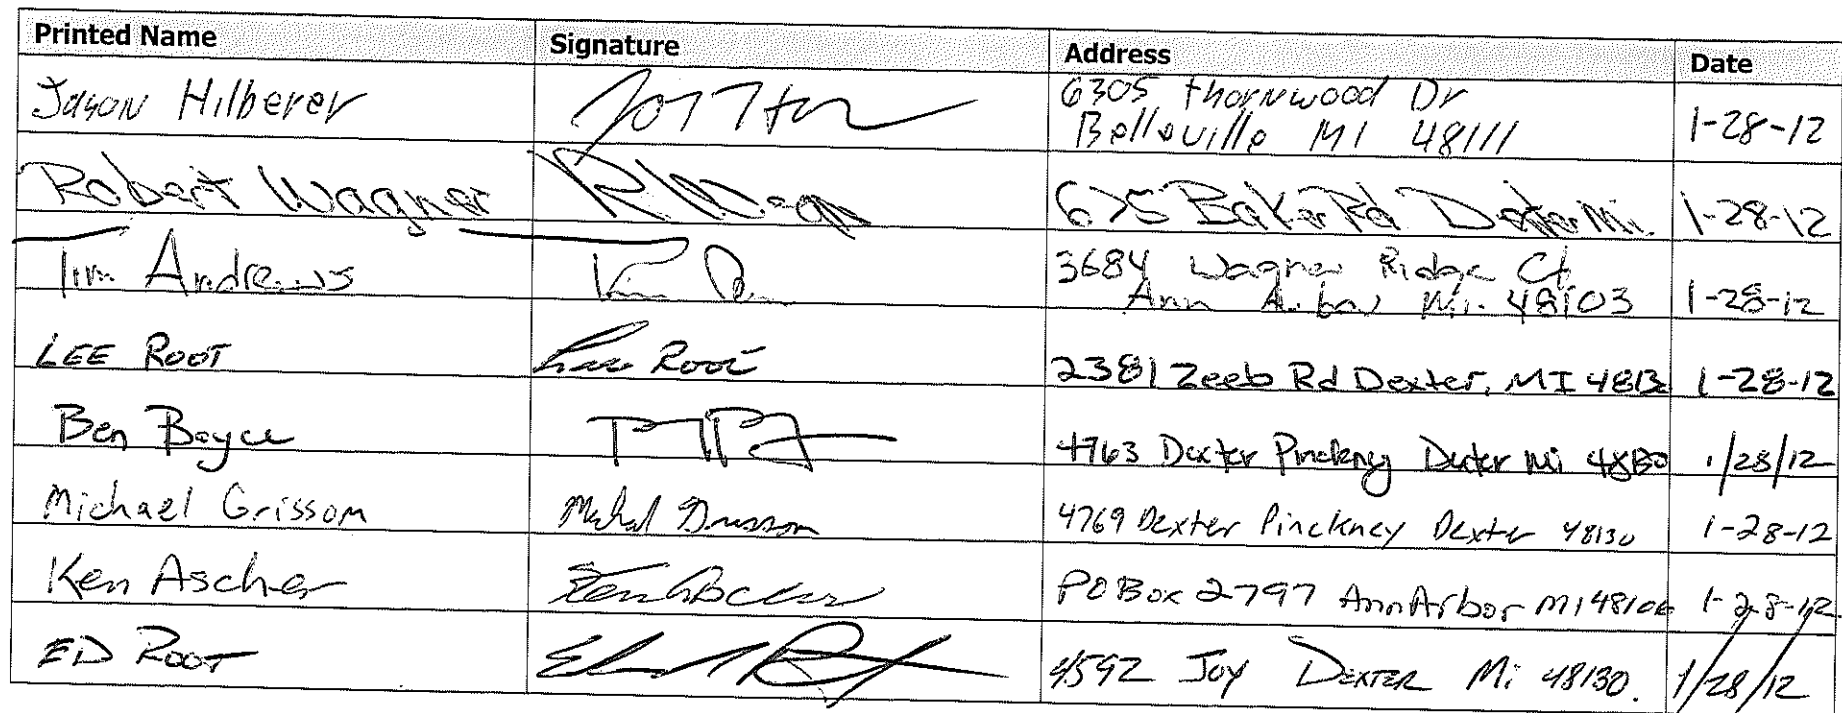 Printed Name Signature Address Date
Jason Hilberer 6305 Thornwood Dr
Belleville MI 48111 1-28-12
Robert Wagner 675 Baker Rd Dexter Mi. 1-28-12
Tim Andrews 3684 Wagner Ridge Ct
Ann Arbor Mi. 48103 1-28-12
LEE ROOT Lee Root 2381 Zeeb Rd Dexter, MI 48130 1-28-12
Ben Boyce 4763 Dexter Pinckney Dexter Mi 48130 1/28/12
Michael Grissom Michael Grissom 4769 Dexter Pinckney Dexter 48130 1-28-12
Ken Ascher Ken Ascher PO Box 2797 Ann Arbor MI 48106 1-28-12
ED ROOT 4592 Joy DEXTER Mi 48130. 1/28/12